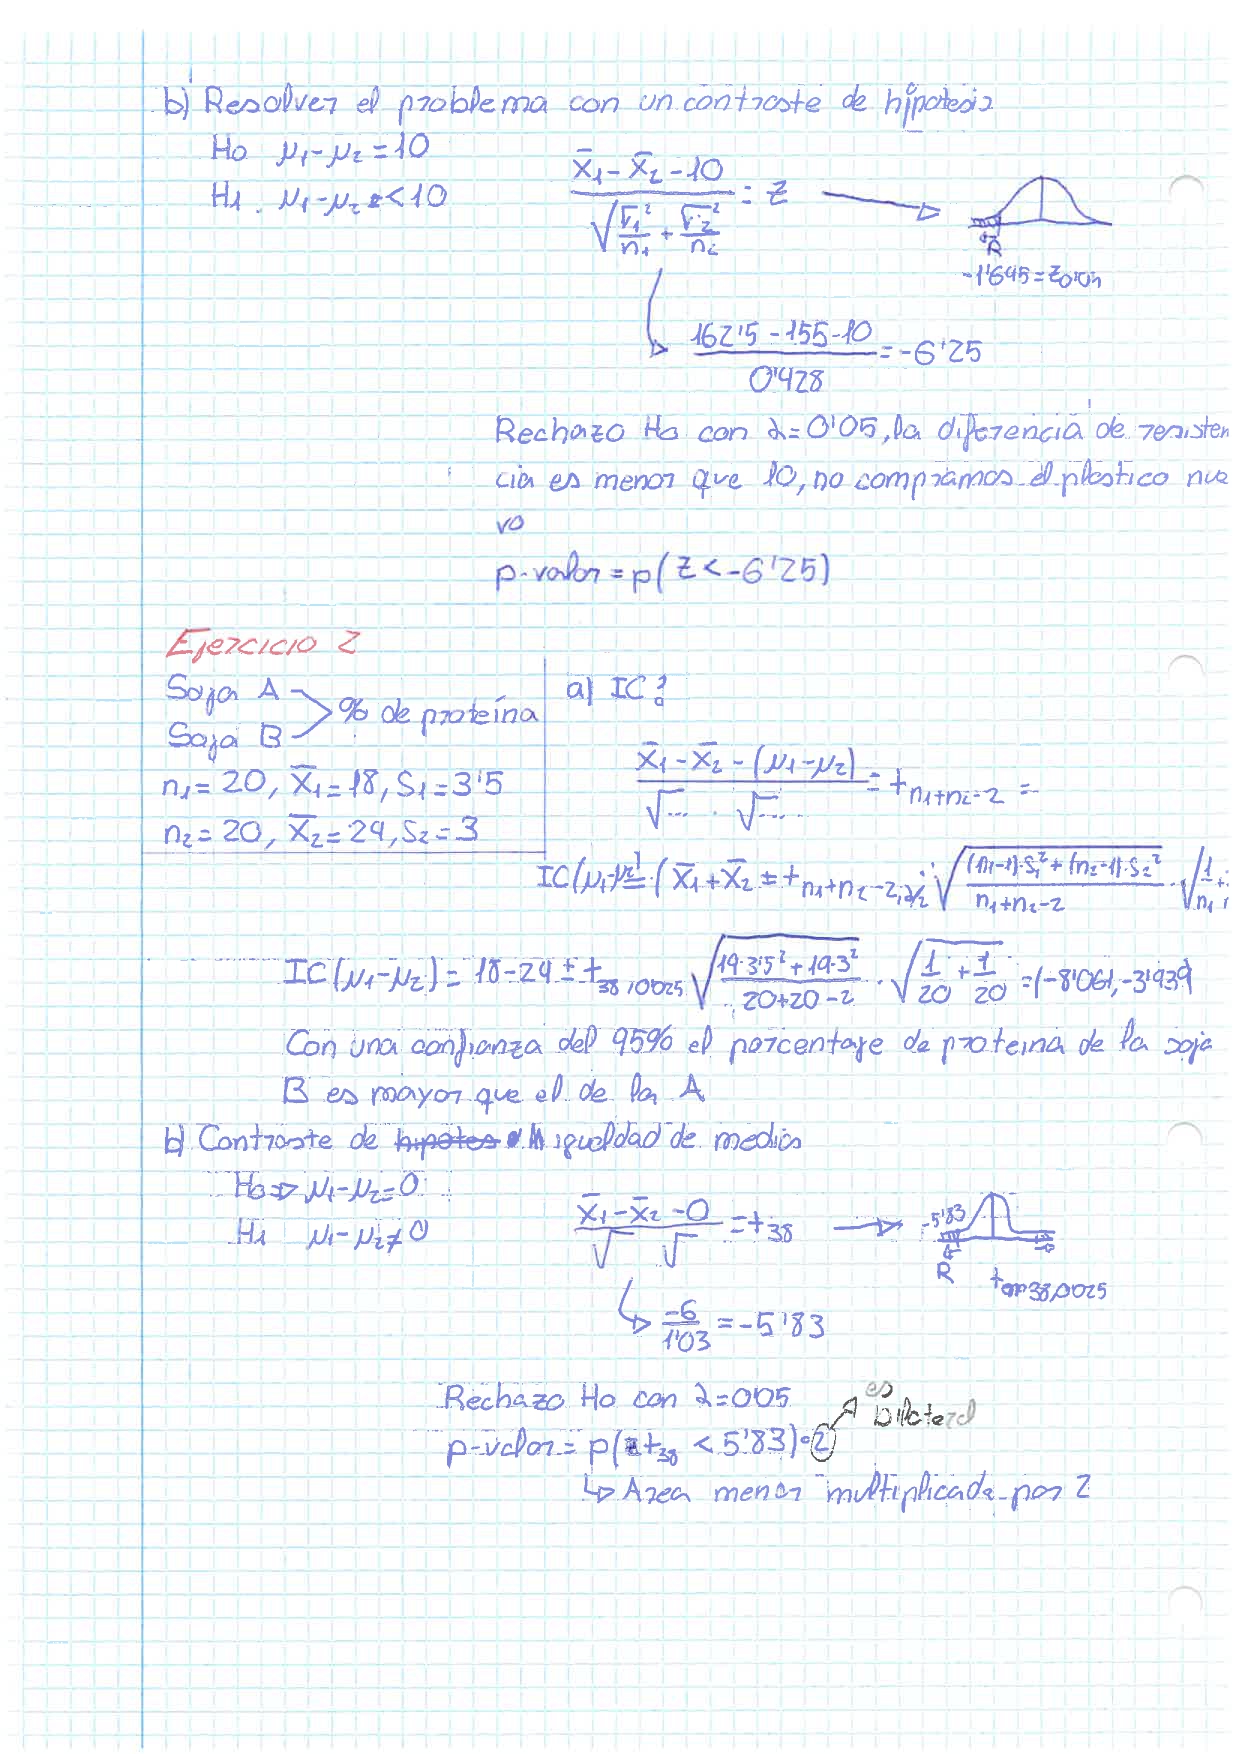 b) Resolver el problema con un contraste de hipotesis
H0 μ1-μ2=10
H1. μ1-μ2<10
(x̄1-x̄2-10)/√(σ1²/n1+σ2²/n2) = z
R
-1'645=z0'05
(162'5-155-10)/0'428=-6'25
Rechazo H0 con α=0'05, la diferencia de resisten
cia es menor que 10, no compramos el plastico nue
vo
p-valor=p(z<-6'25)
Ejercicio 2
Soja A
Soja B
% de proteína
n1=20, x̄1=18, S1=3'5
n2=20, x̄2=24, S2=3
a) IC?
(x̄1-x̄2-(μ1-μ2))/(√... · √...) = t n1+n2-2 =
IC(μ1-μ2)=(x̄1+x̄2±t n1+n2-2,α/2 · √(((n1-1)·S1²+(n2-1)·S2²)/(n1+n2-2)) · √(1/n1+
IC(μ1-μ2)=18-24±t38,0'025 √((19·3'5²+19·3²)/(20+20-2)) · √(1/20+1/20)=(-8'061,-3'939)
Con una confianza del 95% el porcentaje de proteina de la soja
B es mayor que el de la A
b) Contraste de hipotes igualdad de medias
H0⇒μ1-μ2=0
H1 μ1-μ2≠0
(x̄1-x̄2-0)/(√ √)=t38
-5'83
R
t 38,0'025
-6/1'03=-5'83
Rechazo H0 con α=0'05
p-valor=p(t38<5'83)·2
es
bilateral
Area menor multiplicada por 2